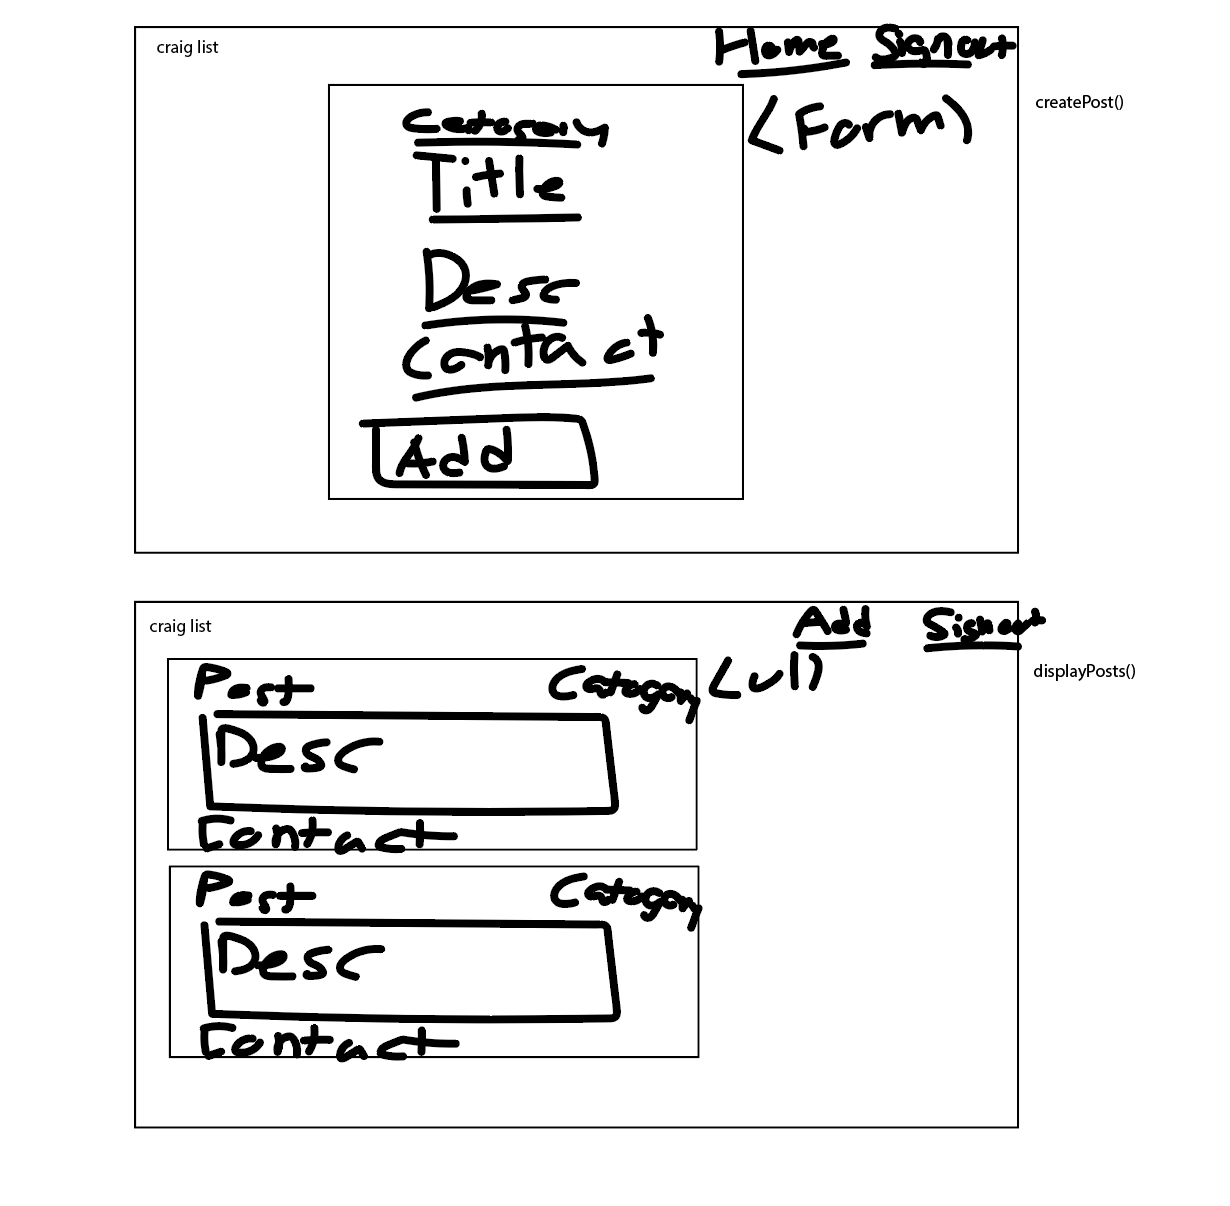 craig list
Home Signout
createPost()
(Form)
Category
Title
Desc
Contact
Add
craig list
Add Signout
displayPosts()
(ul)
Post Catogory
Desc
Contact
Post Catogory
Desc
Contact